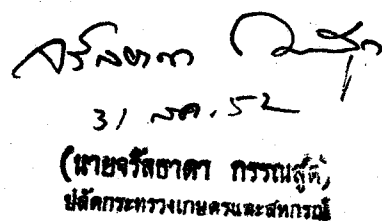 31 สค. 52
(นายจรัลธาดา กรรณสูต)
ปลัดกระทรวงเกษตรและสหกรณ์